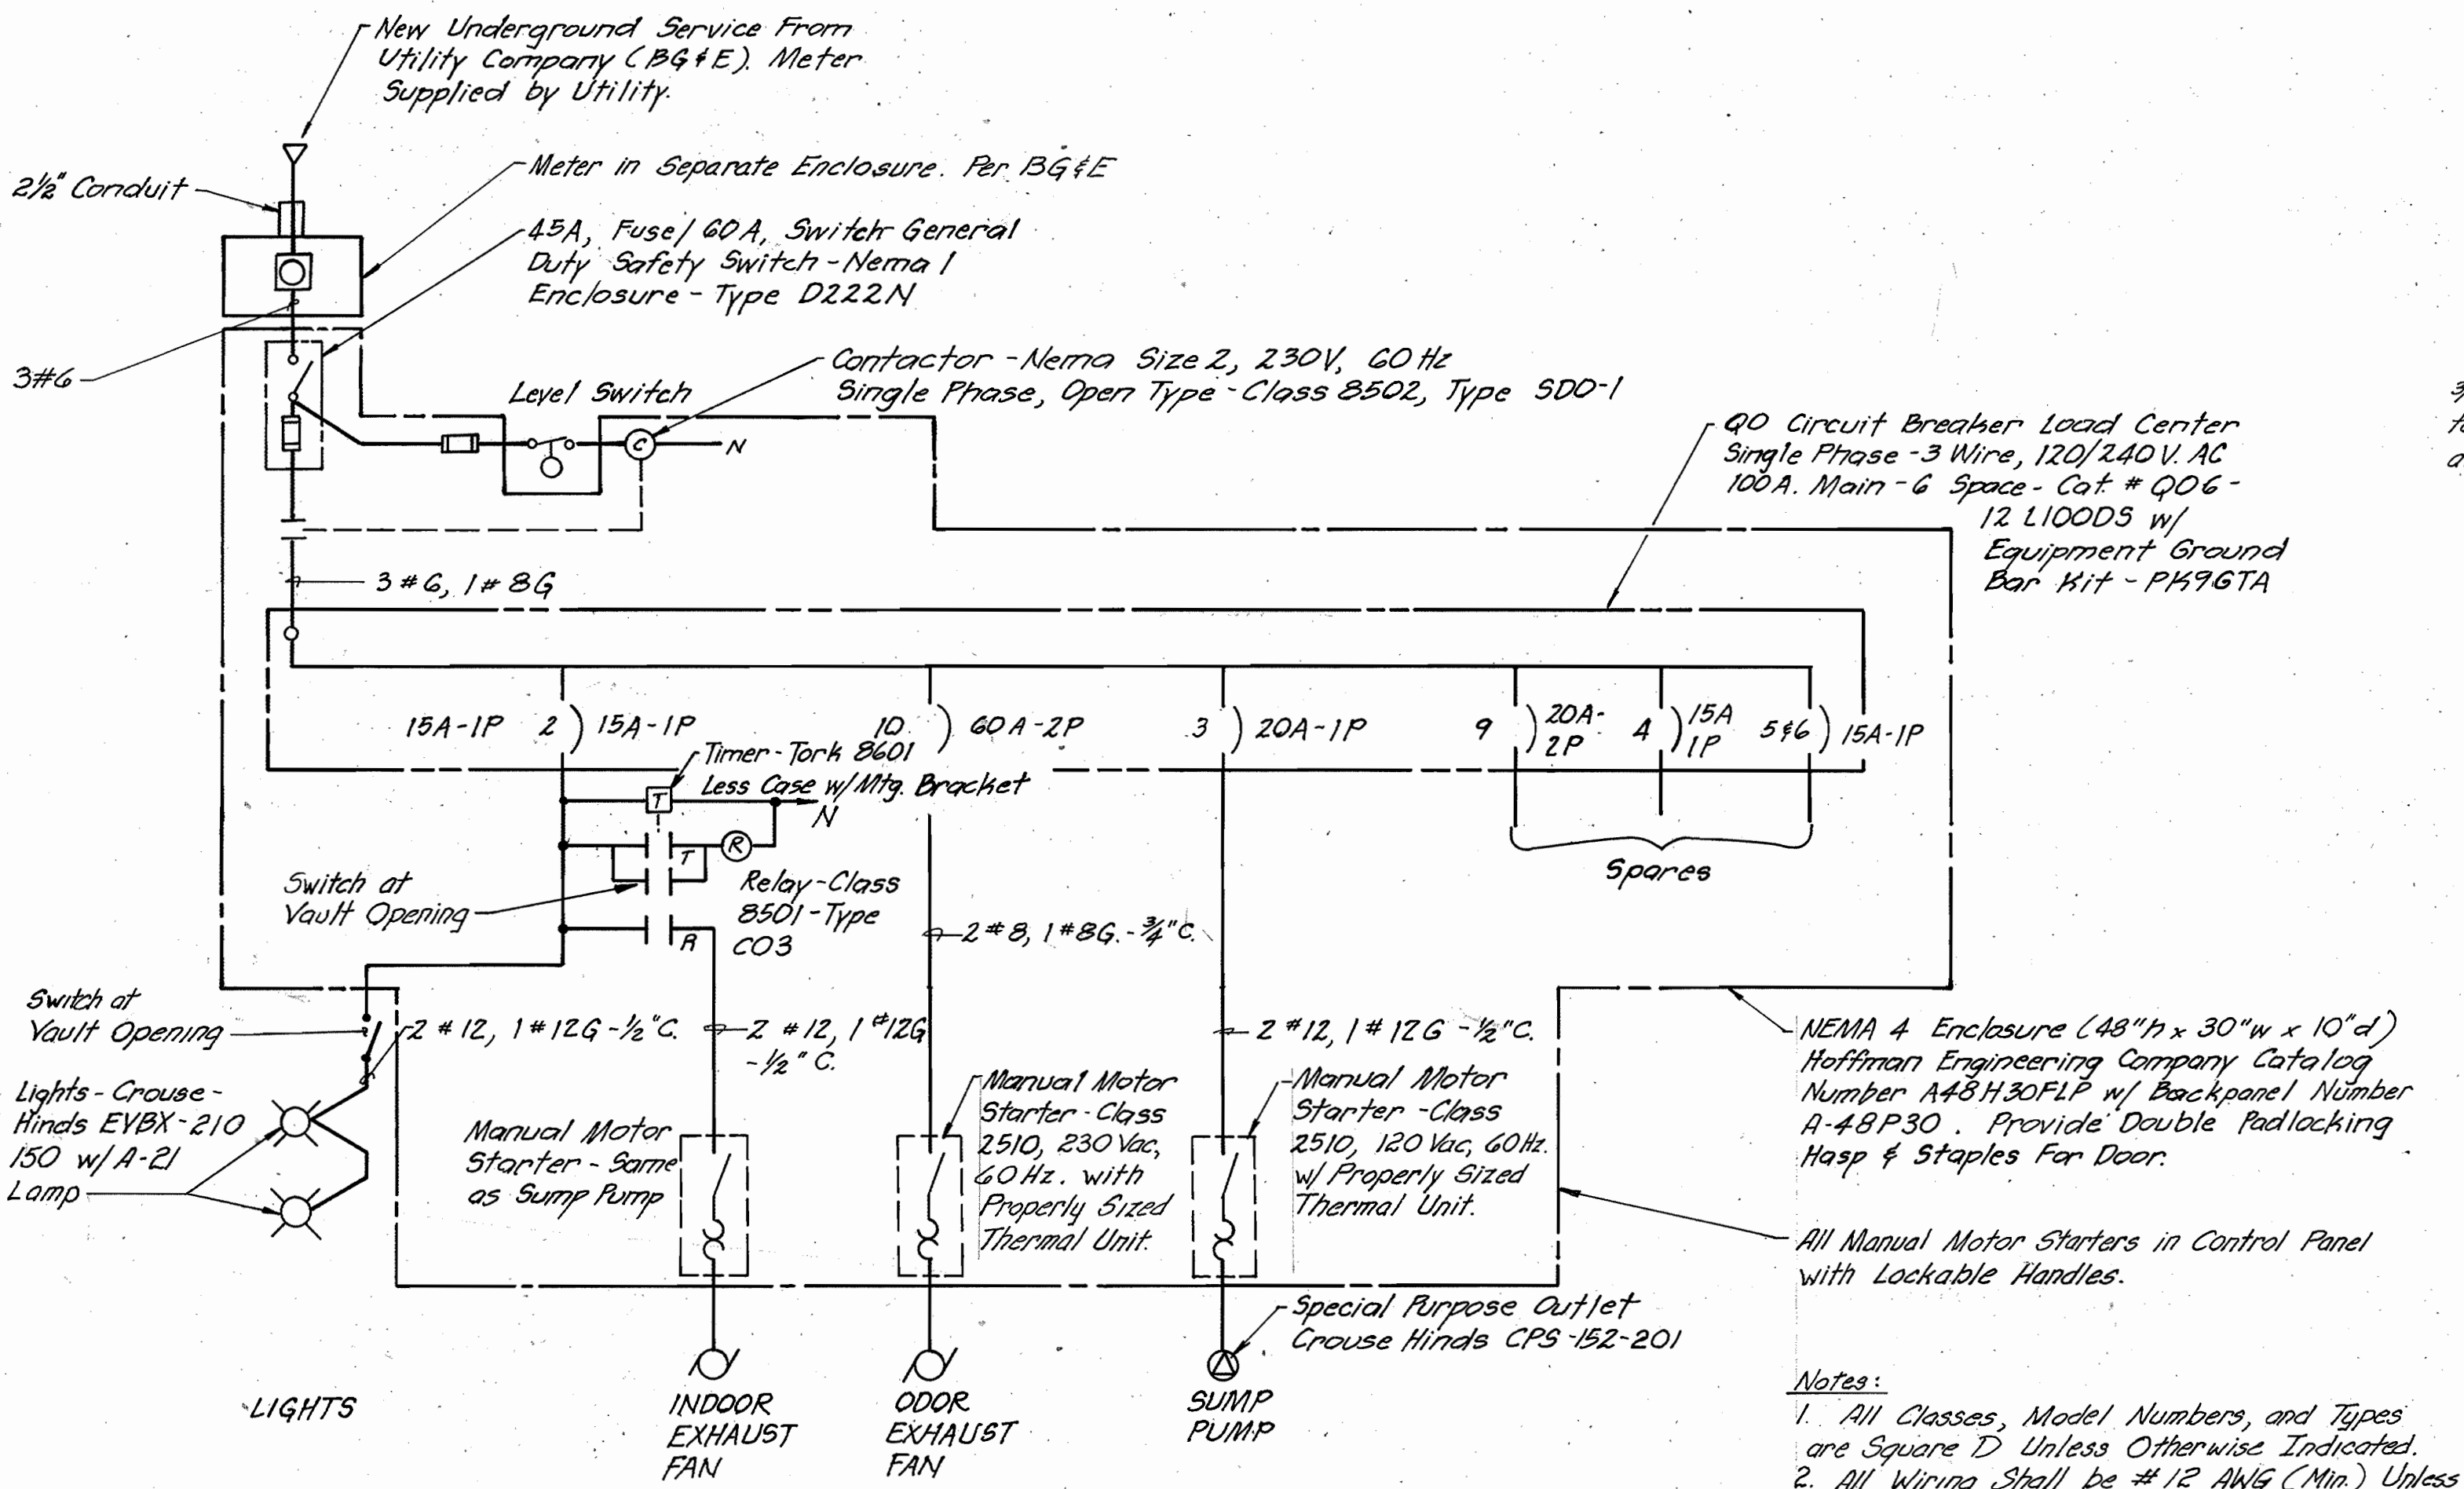 New Underground Service From
Utility Company (BG&E). Meter
Supplied by Utility.
2½" Conduit
Meter in Separate Enclosure. Per BG&E
45A, Fuse/ 60A, Switch General
Duty Safety Switch - Nema 1
Enclosure - Type D222N
3#6
Level Switch
Contactor - Nema Size 2, 230V, 60 Hz
Single Phase, Open Type - Class 8502, Type SDO-1
C
N
QO Circuit Breaker Load Center
Single Phase - 3 Wire, 120/240 V. AC
100 A. Main - 6 Space - Cat. # QO6-
12 L100DS w/
Equipment Ground
Bar Kit - PK9GTA
3#6, 1#8G
15A-1P 2 15A-1P
10 60A-2P
3 20A-1P
9 20A-
2P
4 15A
1P
5&6 15A-1P
Timer-Tork 8601
Less Case w/Mtg. Bracket
T
N
T
R
Switch at
Vault Opening
Relay-Class
8501-Type
CO3
R
Spares
2 #8, 1 #8G. - ¾" C.
Switch at
Vault Opening
2 #12, 1 #12G - ½" C.
2 #12, 1 #12G
- ½" C.
2 #12, 1 #12G - ½" C.
Lights - Crouse-
Hinds EVBX-210
150 w/ A-21
Lamp
Manual Motor
Starter - Same
as Sump Pump
Manual Motor
Starter - Class
2510, 230 Vac,
60 Hz. with
Properly Sized
Thermal Unit.
Manual Motor
Starter - Class
2510, 120 Vac, 60 Hz.
w/ Properly Sized
Thermal Unit.
NEMA 4 Enclosure (48"h x 30"w x 10"d)
Hoffman Engineering Company Catalog
Number A48H30FLP w/ Backpanel Number
A-48P30. Provide Double Padlocking
Hasp & Staples For Door.
All Manual Motor Starters in Control Panel
with Lockable Handles.
Special Purpose Outlet
Crouse Hinds CPS-152-201
LIGHTS
INDOOR
EXHAUST
FAN
ODOR
EXHAUST
FAN
SUMP
PUMP
Notes:
1. All Classes, Model Numbers, and Types
are Square D Unless Otherwise Indicated.
2. All Wiring Shall be #12 AWG (Min.) Unless